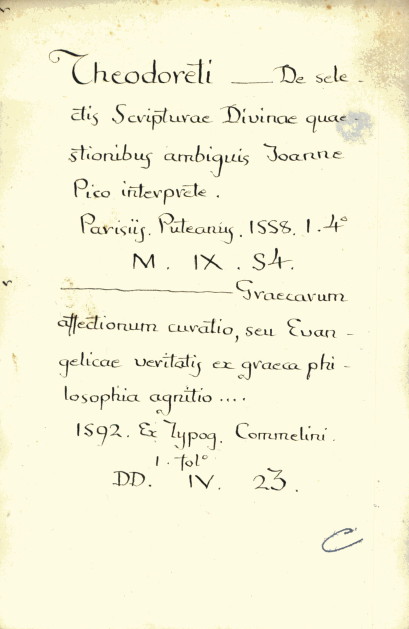 Theodoreti —— De sele-
ctis Scripturae Divinae quae-
stionibus ambiguis Joanne
Pico interprete.
Parisiis. Puteanus. 1558. 1. 4°
M. IX. 54.
———— Graecarum
affectionum curatio, seu Evan-
gelicae veritatis ex graeca phi-
losophia agnitio....
1592. Ex Typog. Commelini.
1. fol°
DD. IV. 23.
C